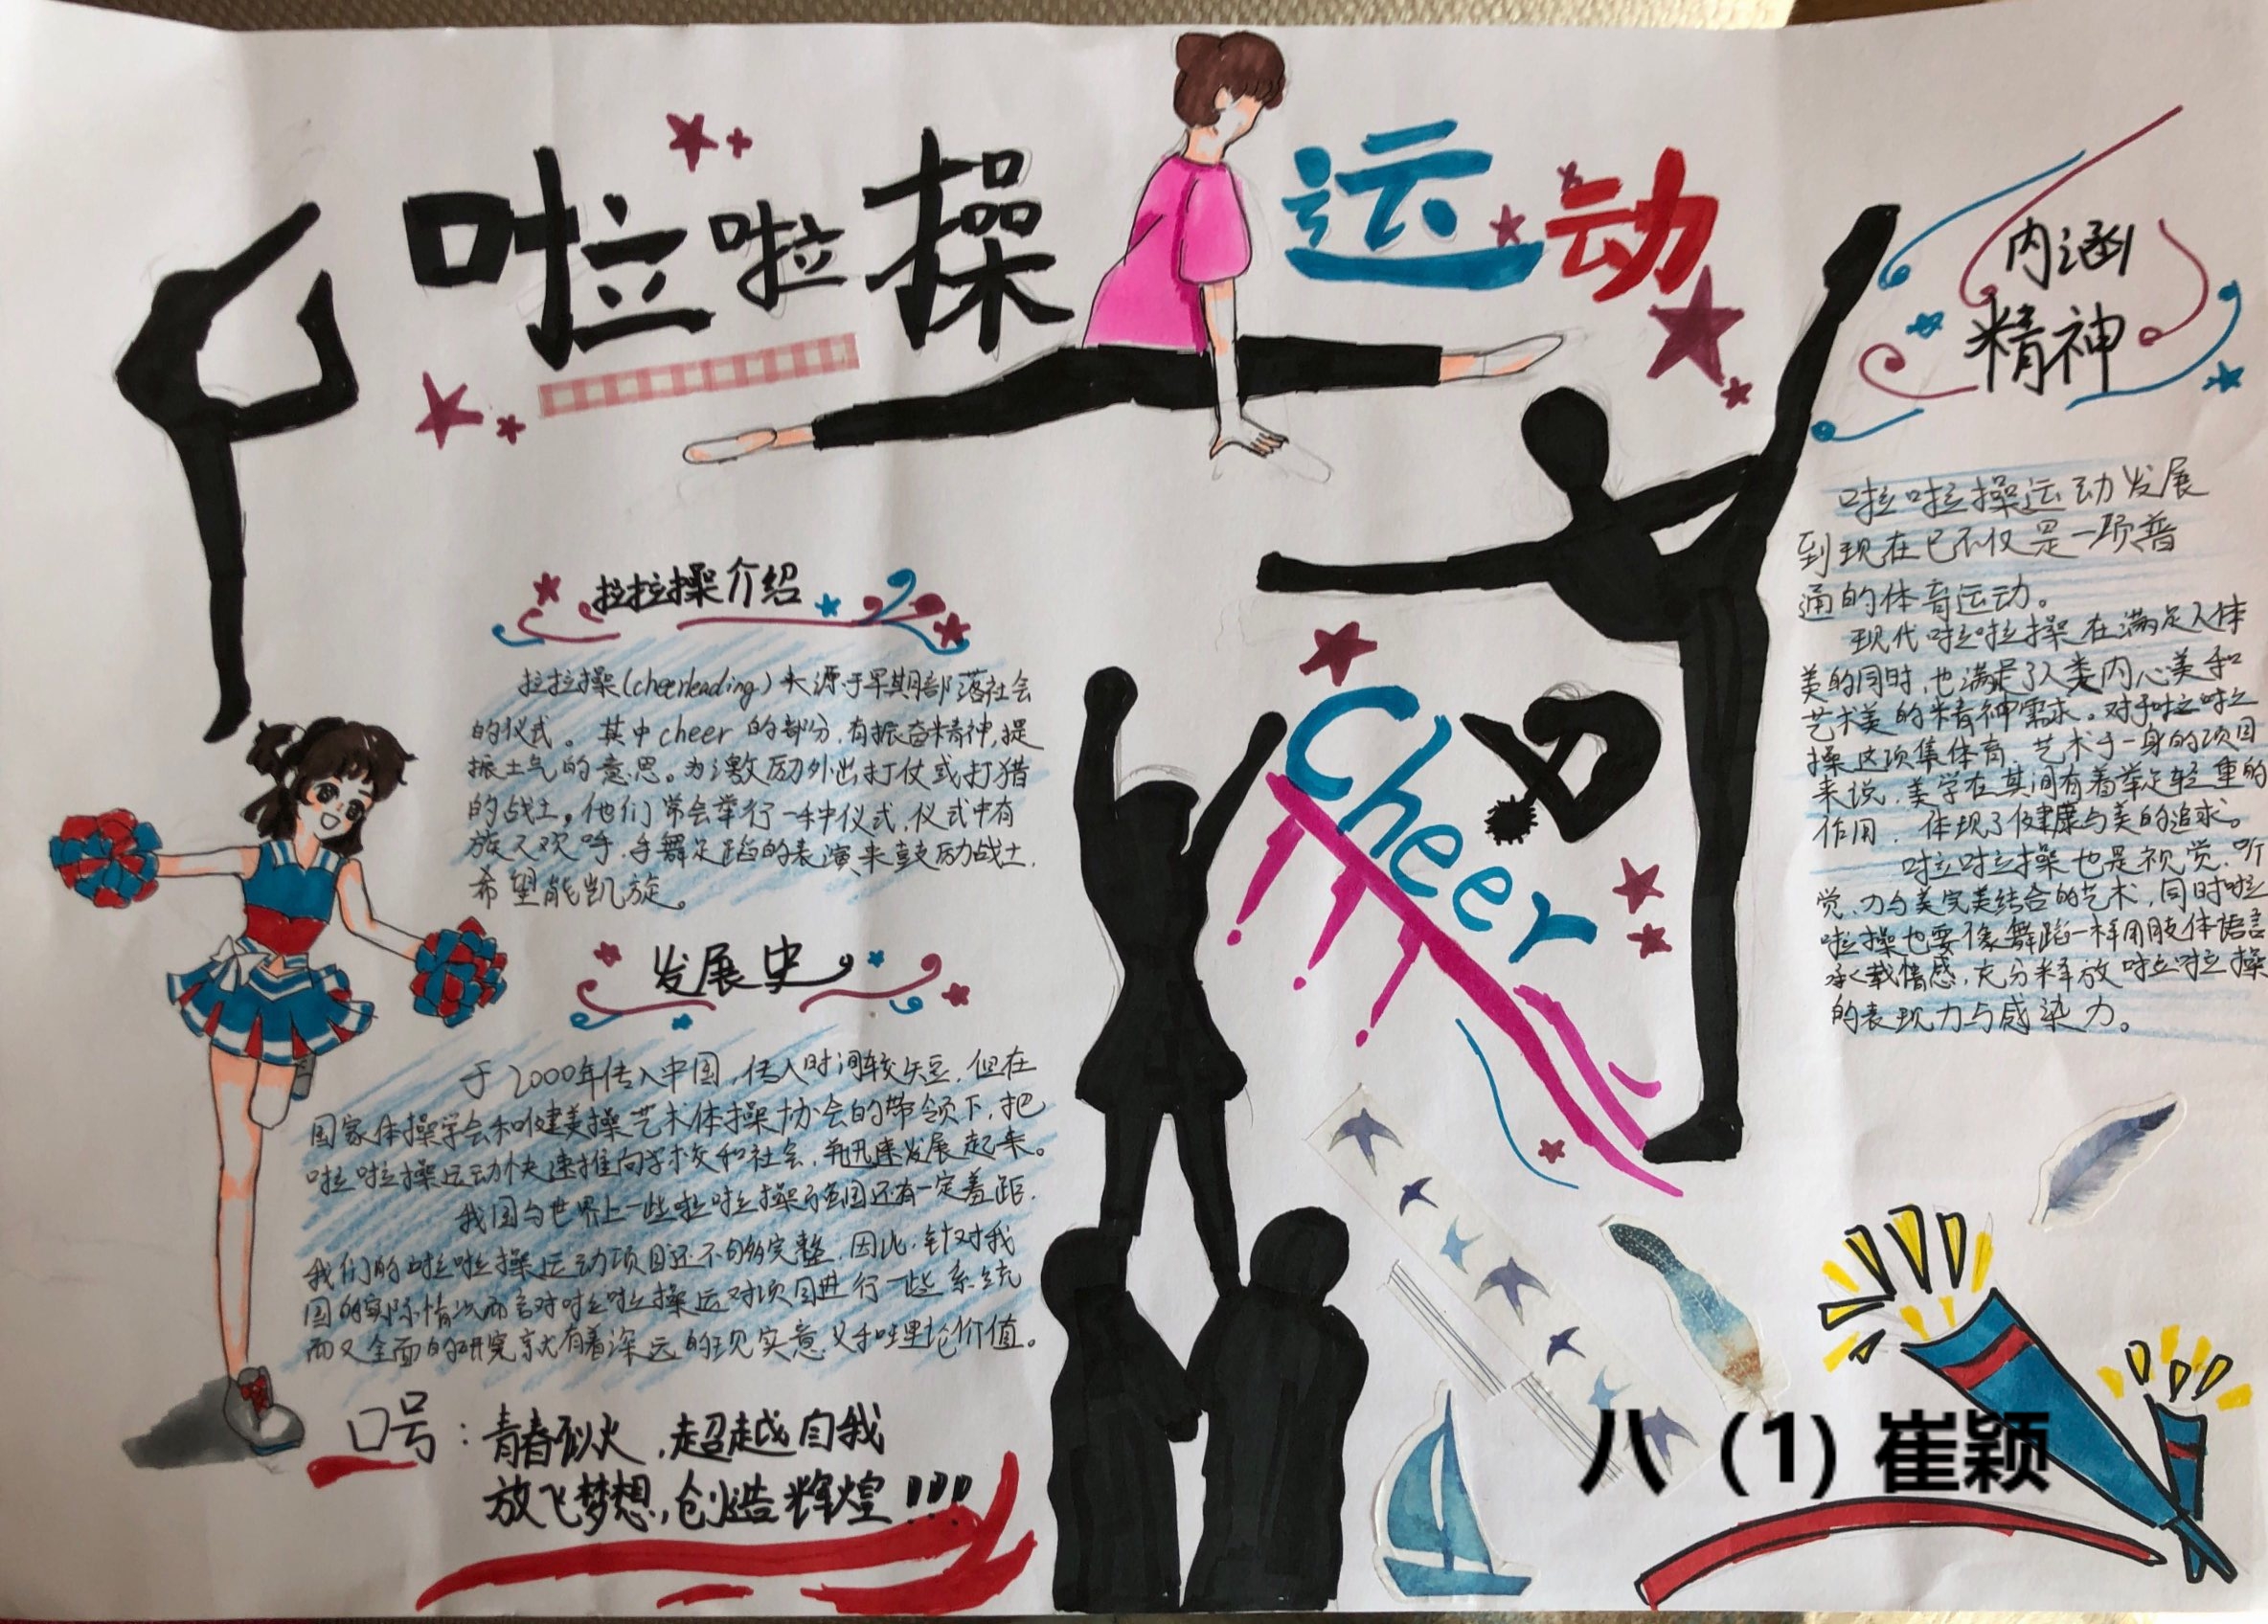 啦啦操运动
拉拉操介绍
拉拉操(cheerleading)来源于早期部落社会
的仪式。其中cheer的部分,有振奋精神,提
振士气的意思。为激励外出打仗或打猎
的战士。他们常会举行一种仪式,仪式中有
族人欢呼、手舞足蹈的表演来鼓励战士,
希望能凯旋。
发展史
于2000年传入中国,传入时间较短,但在
国家体操学会和健美操艺术体操协会的带领下,把
啦啦操运动快速推向学校和社会,并迅速发展起来。
我国与世界上一些啦啦操强国还有一定差距,
我们的啦啦操运动项目还不够完整,因此,针对我
国的实际情况而言对啦啦操运对项目进行一些系统
而又全面的研究就有着深远的现实意义和理论价值。
口号:青春似火,超越自我
放飞梦想,创造辉煌!!!
Cheer
内涵
精神
啦啦操运动发展
到现在已不仅是一项普
通的体育运动。
现代啦啦操在满足人体
美的同时,也满足了人类内心美和
艺术美的精神需求。对于啦啦
操这项集体育、艺术于一身的项目
来说,美学在其间有着举足轻重的
作用,体现了健康与美的追求。
啦啦操也是视觉、听
觉、力与美完美结合的艺术,同时啦
啦操也要像舞蹈一样用肢体语言
承载情感,充分释放啦啦操
的表现力与感染力。
八(1)崔颖